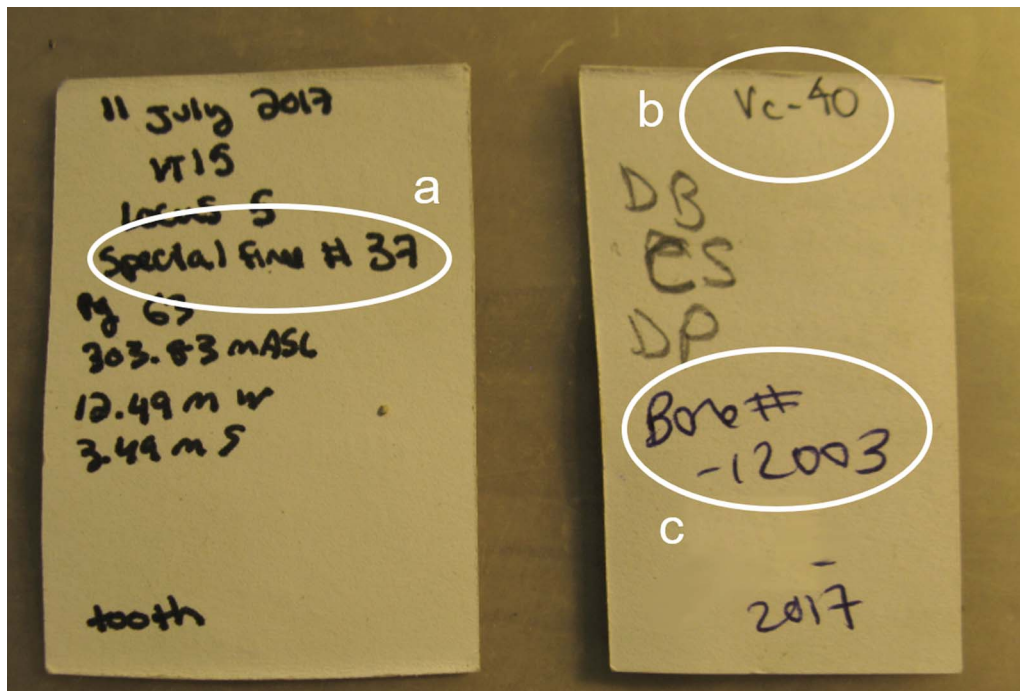 11 July 2017
VT15
locus 5
a
Special Find # 37
Pg 63
303.83 mASL
12.49 m W
3.49 m S
tooth
b
Vc-40
DB
CS
DP
Bone #
-12003
c
-
2017